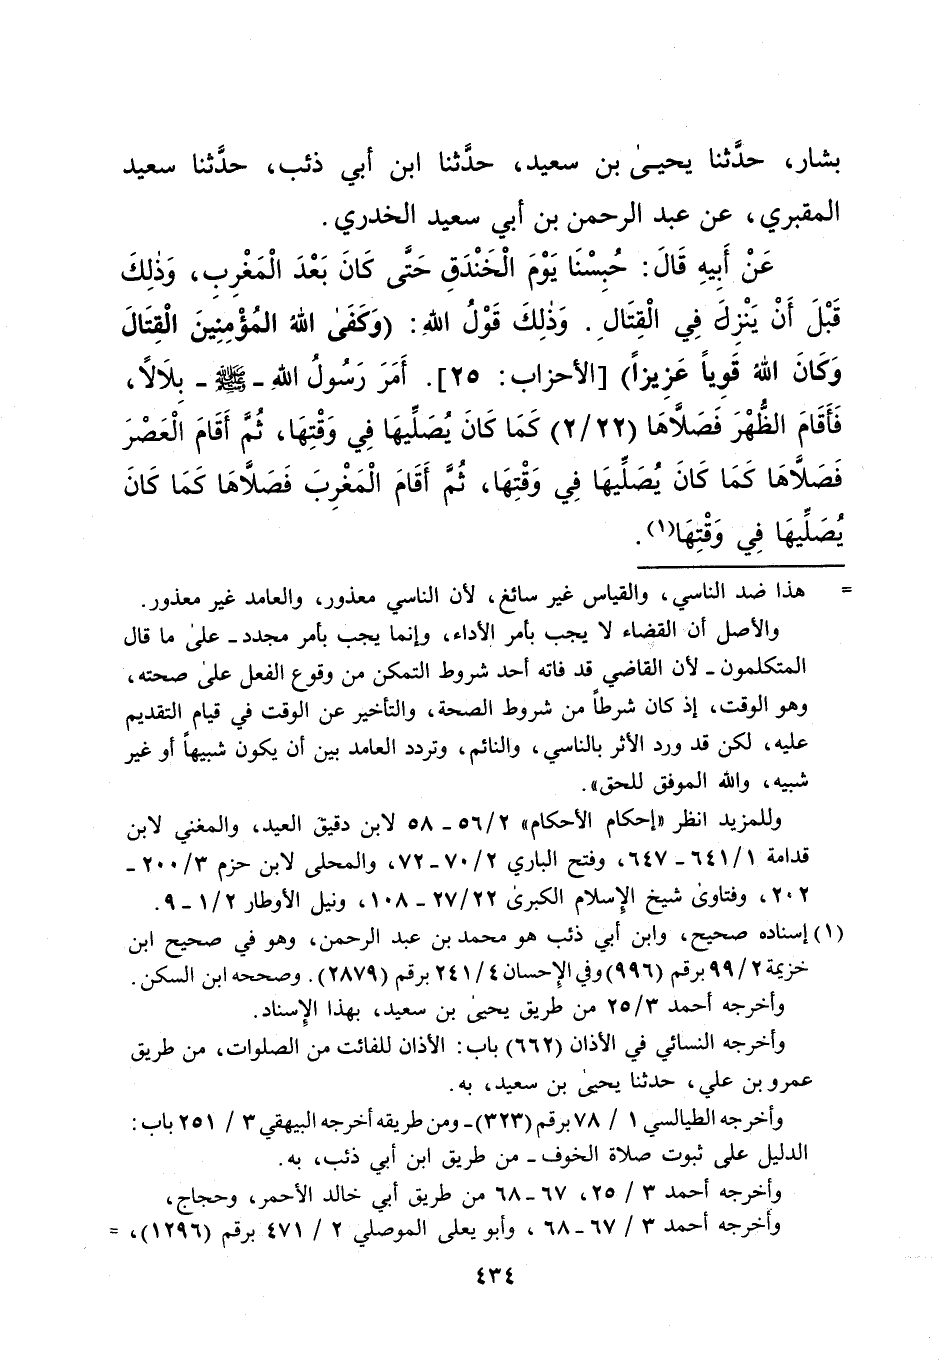 بشار، حدَّثنا يحيىٰ بن سعيد، حدَّثنا ابن أبي ذئب، حدَّثنا سعيد
المقبري، عن عبد الرحمن بن أبي سعيد الخدري.
عَنْ أَبِيهِ قَالَ: حُبِسْنَا يَوْمَ الْخَنْدَقِ حَتَّى كَانَ بَعْدَ الْمَغْرِبِ، وَذٰلِكَ
قَبْلَ أَنْ يَنْزِلَ فِي الْقِتَالِ. وَذٰلِكَ قَوْلُ اللهِ: (وَكَفَىٰ اللهُ الْمُؤْمِنِينَ الْقِتَالَ
وَكَانَ اللهُ قَوِياً عَزِيزاً) [الأحزاب: ٢٥]. أَمَرَ رَسُولُ اللهِ - ﷺ - بِلَالاً،
فَأَقَامَ الظُّهْرَ فَصَلَّاهَا (٢/٢٢) كَمَا كَانَ يُصَلِّيهَا فِي وَقْتِهَا، ثُمَّ أَقَامَ الْعَصْرَ
فَصَلَّاهَا كَمَا كَانَ يُصَلِّيهَا فِي وَقْتِهَا، ثُمَّ أَقَامَ الْمَغْرِبَ فَصَلَّاهَا كَمَا كَانَ
يُصَلِّيهَا فِي وَقْتِهَا(١).
= هذا ضد الناسي، والقياس غير سائغ، لأن الناسي معذور، والعامد غير معذور.
والأصل أن القضاء لا يجب بأمر الأداء، وإنما يجب بأمر مجدد - علىٰ ما قال
المتكلمون - لأن القاضي قد فاته أحد شروط التمكن من وقوع الفعل علىٰ صحته،
وهو الوقت، إذ كان شرطاً من شروط الصحة، والتأخير عن الوقت في قيام التقديم
عليه، لكن قد ورد الأثر بالناسي، والنائم، وتردد العامد بين أن يكون شبيهاً أو غير
شبيه، والله الموفق للحق».
وللمزيد انظر «إحكام الأحكام» ٥٦/٢ - ٥٨ لابن دقيق العيد، والمغني لابن
قدامة ٦٤١/١ - ٦٤٧، وفتح الباري ٧٠/٢ - ٧٢، والمحلى لابن حزم ٢٠٠/٣ -
٢٠٢، وفتاوىٰ شيخ الإسلام الكبرىٰ ٢٧/٢٢ - ١٠٨، ونيل الأوطار ١/٢ - ٩.
(١) إسناده صحيح، وابن أبي ذئب هو محمد بن عبد الرحمن، وهو في صحيح ابن
خزيمة ٩٩/٢ برقم (٩٩٦) وفي الإحسان ٢٤١/٤ برقم (٢٨٧٩). وصححه ابن السكن.
وأخرجه أحمد ٢٥/٣ من طريق يحيىٰ بن سعيد، بهذا الإسناد.
وأخرجه النسائي في الأذان (٦٦٢) باب: الأذان للفائت من الصلوات، من طريق
عمرو بن علي، حدثنا يحيىٰ بن سعيد، به.
وأخرجه الطيالسي ١ / ٧٨ برقم (٣٢٣) - ومن طريقه أخرجه البيهقي ٣ / ٢٥١ باب:
الدليل على ثبوت صلاة الخوف - من طريق ابن أبي ذئب، به.
وأخرجه أحمد ٣ / ٢٥، ٦٧ - ٦٨ من طريق أبي خالد الأحمر، وحجاج،
وأخرجه أحمد ٣ / ٦٧ - ٦٨، وأبو يعلى الموصلي ٢ / ٤٧١ برقم (١٢٩٦)، =
٤٣٤